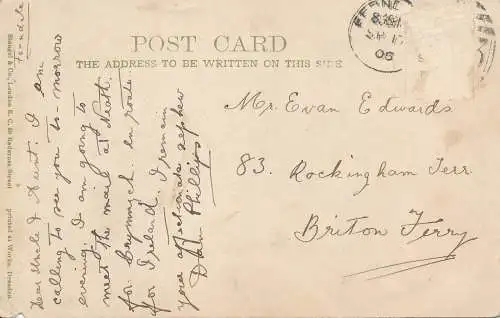 POST CARD
THE ADDRESS TO BE WRITTEN ON THIS SIDE
FERND
8.15
SP
06
Mr. Evan Edwards
83. Rockingham Terr.
Briton Ferry
Ferndale
Dear Uncle & Aunt. I am
calling to see you to-morrow
evening. I am going to
meet the mail at Neath.
for Crymmych. en route.
for Ireland. I remain
your affectionate nephew
Phillips
Stengel & Co., London E. C. 39 Redcross Street printed at Works Dresden